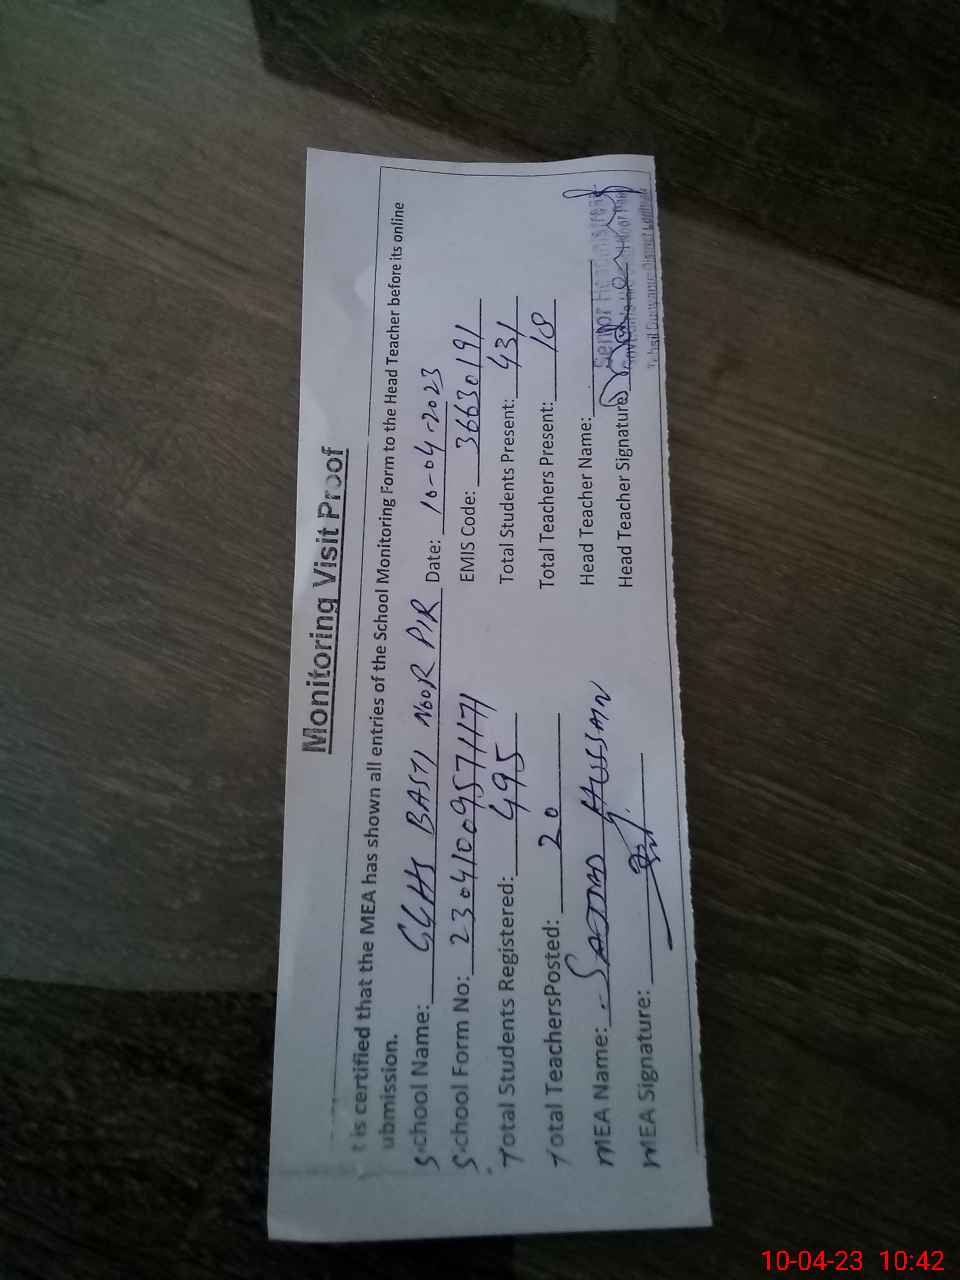 Monitoring Visit Proof
t is certified that the MEA has shown all entries of the School Monitoring Form to the Head Teacher before its online
ubmission.
School Name: GGHS BASTI NOOR PIR Date: 10-04-2023
School Form No: 23041009571171 EMIS Code: 36630191
Total Students Registered: 495 Total Students Present: 431
Total TeachersPosted: 20 Total Teachers Present: 18
MEA Name: SAJJAD HUSSAIN Head Teacher Name:
MEA Signature: Head Teacher Signature
Senior Headmistress
10-04-23 10:42